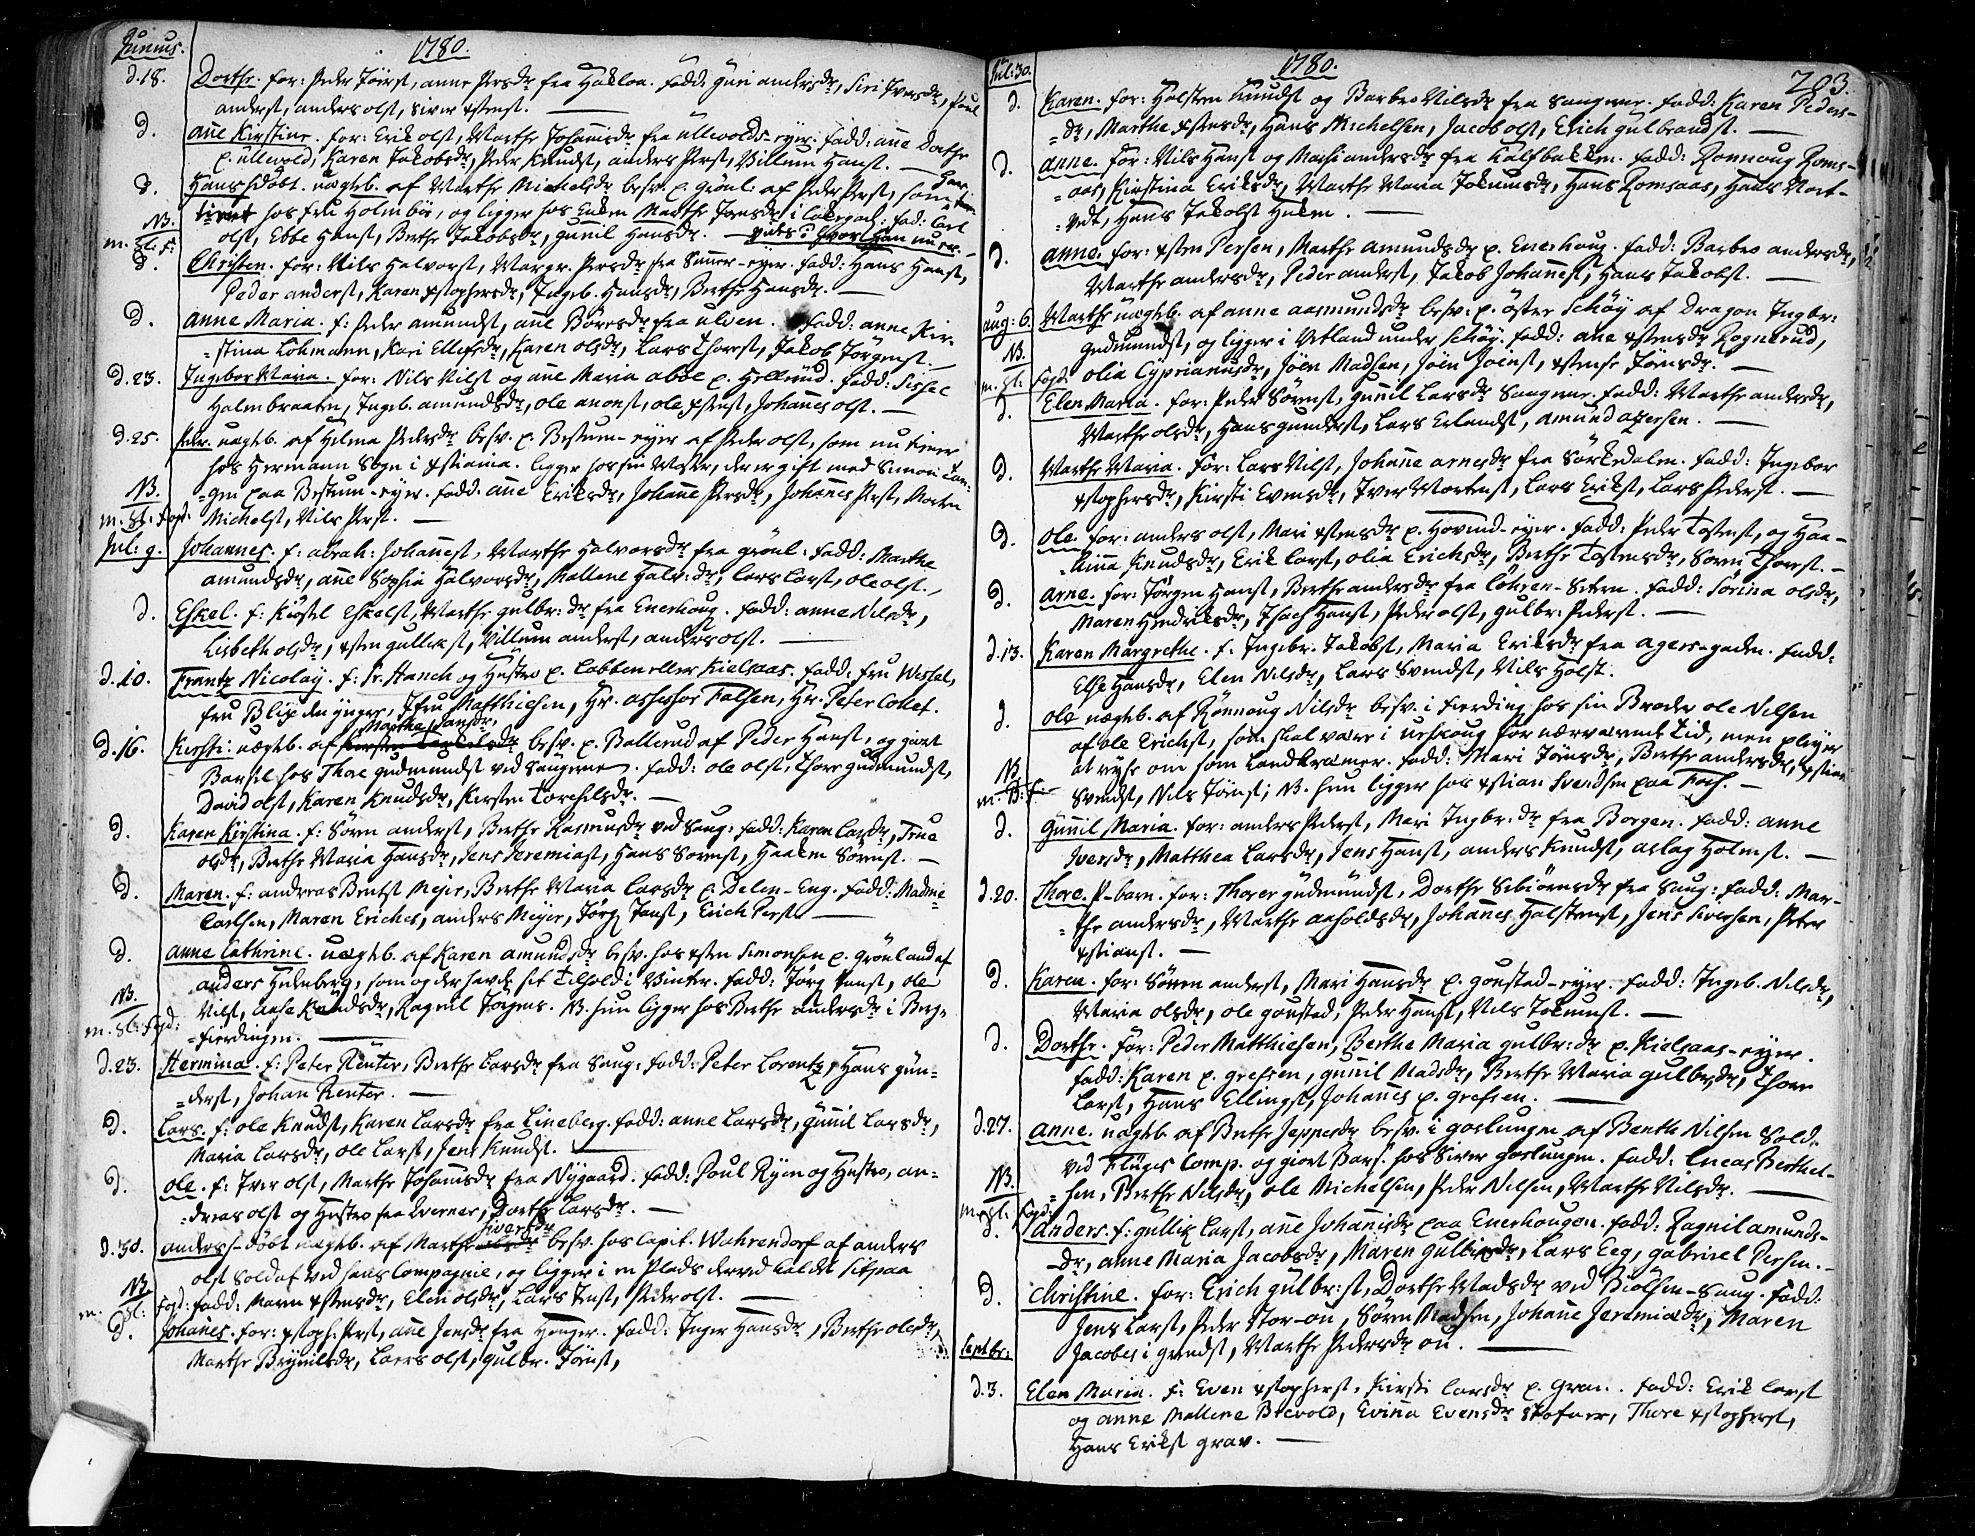 Junius.
1780.
d. 18. Dorthe. for: Peder Törist, anne Persdr fra Hakloa. fadd: Guri andersdr, Siri Iversdr, Poul
anderst, anders olst, Siver xstenst.
d. añe Kirstine. for: Erik olst, Marthe Johañisdr fra ullevolds-eyer. fadd: añe Dorthe
p. ullevold, Karen Jakobsdr, Peder Knudst, anders Perst, Villum Hanst.
d. Hans hdöbt. uægteb. af Marthe Michelsdr besv. p. Grönl: af Peder Perst, som har
tient hos fru Holmboe, og ligger hos Enken Marthe Jonsdr i Lakegad: fad: Carl
NB.
olst, Ebbe Hanst, Berthe Jakobsdr, gunil Hansdr.
m. Sl: F:
d. Christen. for: Nils Halvorst, Margr. Persdr fra Smier-eyer. fadd: Hans Hanst,
Peder anderst, Karen xstophersdr, Ingeb. Hansdr, Berthe Hansdr.
d. anne Maria. f: Peder amundst, añe Börresdr fra ulven. fadd: anne Kir-
=stina Lohmann, Kari Ellefsdr, Karen olsdr, Lars Thorst, Jakob Jörgenst.
d. 23. Ingebor Maria. for: Nils Nilst og añe Maria abde p. Hellerud. fadd: Sissel
Holmbraaten, Ingeb. amundsdr, ole anonst, ole xstenst, Johañes olst.
d. 25. Peder. uægteb. af Helena Pedersdr besv. p. Bestum-eyer af Peder olst, som nu tiener
hos Hermann Sogn i xstiania. ligger hos sin Moster, der er gift med Simon Lan-
NB.
=gen paa Bestum-eyer. fadd: añe Eriksdr, Johañe Persdr, Johañes Perst, Morten
m. Sl: Fogd: Michelst, Nils Perst.
Jul: 9. Johannes. f: abrah: Johañest, Marthe Halvorsdr fra grönl: fadd: Marthe
amundsdr, añe Sophia Halvorsdr, Mallene Halv: dr, Lars Larst, ole olst.
d. Eskel. f: Kiöstel Eskelst, Marthe gulbr: dr fra Enerhoug. fadd: anne Nilsdr,
Lisbeth olsdr, xsten gullikst, Villum anderst, anders olst.
d. 10. Frantz Nicolay. f: Sr. Hanch og Hustro p. Labben eller Kielsaas. fadd: fru Wessel,
fru Blix den yngre, Jfru Matthiesen, Hr. assessor Falsen, Hr. Peter Collet.
Marthe Jansdr,
d. 16. Kirsti: uægteb. af besv. p. Ballerud af Peder Hanst, og giort
Barsel hos Thore gudmundst ved Saugene. fadd: ole olst, Thore gudmundst,
David olst, Karen Knudsdr, Kirsten Torchelsdr.
d. Karen Kirstina. f: Sörn anderst, Berthe Rasmusdr ved Saug: fadd: Karen Larsdr, True
olsdr, Berthe Maria Hansdr, Jens Jeremiast, Hans Sörnst, Haaken Sörnst.
d. Maren. f: andreas Berntst Meyer, Berthe Maria Larsdr p. Delen-Eng. fadd: Madme
Carlsen, Maren Eriches, anders Meyer, Jörg. Janst, Erich Perst
d. Anne Cathrine. uægteb. af Karen amundsdr besv. hos xsten Simonsen p. Grönland af
anders Helneberg, som og der havde sit Tilhold i Vinter. fadd: Jörg. Janst, ole
NB.
Nilst, aase Knudsdr, Ragnil Jörgens. NB. hun ligger hos Berthe andersdr i Berg-
m. Sl: Fogd:
=fierdingen.
d. 23. Hermina. f: Peter Reuter, Berthe Larsdr fra Saug: fadd: Peter Lorentz, Hans gün-
=derst, Johan Reuter.
d. Lars. f: ole Knudst, Karen Larsdr fra Lineberg. fadd: anne Larsdr, gunil Larsdr,
Maria Larsdr, ole Larst, Jens Knudst.
d. ole. f: Iver olst, Marthe Johañisdr fra Nygaard. fadd: Poul Ryen og Hustro, an-
=dreas olst og Hustro fra Qverner, Dorthe Larsdr.
Siversdr
d. 30. anders h-döbt uægteb. af Marthe besv. hos Capit. Wahrendorf af anders
olst Soldat ved hans Compagnie, og ligger i en Plads derved kaldet Sitpaa
NB.
m. Sl: Fogd: fadd: Maren xstensdr, Elen olsdr, Lars Jenst, Peder olst.
d. Johañes. for: xstoph: Perst, añe Jensdr fra Henger. fadd: Inger Hansdr, Berthe olsdr,
Marthe Brynilsdr, Lars olst, gulbr. Jönst,
Jul: 30.
1780.
203.
d. Karen. for: Holsten Knudst og Barbro Nilsdr fra Saugene. fadd: Karen Peders-
=dr, Marthe xstensdr, Hans Michelsen, Jacob olst, Erich gulbrandst.
d. anne. for: Nils Hanst og Mari andersdr fra Kalfbakken. fadd: Ronnoug Roms-
=aas, Kirstina Eriksdr, Marthe Maria Jokumsdr, Hans Romsaas, Hans Nort-
=vedt, Hans Jakobst Huken.
d. anne. for: xsten Persen, Marthe amundsdr p. Enerhoug. fadd: Barbro andersdr,
Marthe andersdr, Peder anderst, Jakob Johañest, Hans Jakobst.
aug: 6. Marthe uægteb. af anne aasmundsdr besv. p. öster Schöy af Dragon Ingbr:
gudmundst, og ligger i Utland under Schöy. fadd: ane xstensdr Rognerud,
NB.
m. Sl: Fogd: olia Cyprianusdr, Jöen Madsen, Jöen Joenst, xstense Jönsdr.
d. Elen Maria. for: Peder Sörenst, gunil Larsdr Saugene. fadd: Marthe andersdr,
Marthe olsdr, Hans gunderst, Lars Erlandst, amund aspersen.
d. Marthe Maria. for: Lars Nilst, Johañe arnesdr fra Sörkedalen. fadd: Ingebor
xstophersdr, Kirsti Evensdr, Iver Mortenst, Lars Erikst, Lars Pederst.
d. ole. for: anders olst, Mari xstensdr p. Hovind-eyer. fadd: Peder Tostenst, og Haa-
=kina Knudsdr, Erik Larst, olia Erichsdr, Berthe Tostensdr, Sörn Thorst.
d. arne. for: Jörgen Hanst, Berthe andersdr fra Löhren-Sæteren. fadd: Sörina olsdr,
Maren Hendriksdr, Isach Hanst, Peder olst, gulbr: Pederst.
d. 13. Karen Margrethe. f: Ingebr. Jakobst, Maria Eriksdr fra agers-gaden. fadd:
Else Hansdr, Elen Nilsdr, Lars Svendst, Nils Holst.
d. ole uægteb. af Rönnoug Nilsdr besv. i fierding: hos sin Broder ole Nilsen
af ole Erichst, som skal være i urskoug for nærværende tid, men pleyer
NB.
at reyse om som Landkræmer. fadd: Mari Jönsdr, Berthe andersdr, xstian
m. Sl: F: Svendst, Nils Jönst; NB. hun ligger hos xstian Svendsen paa Foss.
d. Gunil Maria. for: anders Pederst, Mari Ingbr: dr fra Borgen. fadd: anne
Iversdr, Matthea Larsdr, Jens Hanst, anders Knudst, aslag Holmst.
d. 20. Thore. P-barn. for: Thorer gudmundst, Dorthe Sebiörnsdr fra Saug: fadd: Mar-
=the andersdr, Marthe aasoldsdr, Johañes Halstenst, Jens Siversen, Peter
xstianst.
d. Karen. for: Sören anderst, Mari Hansdr p. gousted-eyer. fadd: Ingeb. Nilsdr,
Maria olsdr, ole gousted, Peder Hanst, Nils Jokumst.
d. Dorthe. for: Peder Matthiesen, Berthe Maria gulbr: dr p. Kielsaas-eyer.
fadd: Karen p. grefsen, gunil Madsdr, Berthe Maria gulbrsdr, Thore
Larst, Hans Ellingst, Johañes p. grefsen.
d. 27. anne. uægteb. af Berthe Jeppesdr besv. i goslungen af Benth Nilsen Sold.
ved Flüges Comp. og giort Bars. hos Siver goslungen. fadd: Lucas Berthel-
NB.
=sen, Berthe Nilsdr, ole Michelsen, Peder Nilsen, Marthe Nilsdr.
m. Sl: Fogd:
d. anders. f: gullix Larst, añe Johañisdr paa Enerhougen. fadd: Ragnil amunds-
=dr, anne Maria Jacobsdr, Maren gullixsdr, Lars Eeg, gabriel Persen.
d. Christine. for: Erich gulbr: st, Dorthe Madsdr ved Biölsen-Saug. fadd:
Jens Larst, Peder Stor-ou, Sören Madsen, Johañe Jeremiæsdr, Maren
Septbr: Jacobes i grendst, Marthe Pedersdr ou.
d. 3. Elen Maria. f: Even xstopherst, Kirsti Larsdr p. Grav. fadd: Erik Larst
og anne Mallene Brevold, Evina Evensdr Skofver, Thore xstopherst,
Hans Erikst grav.